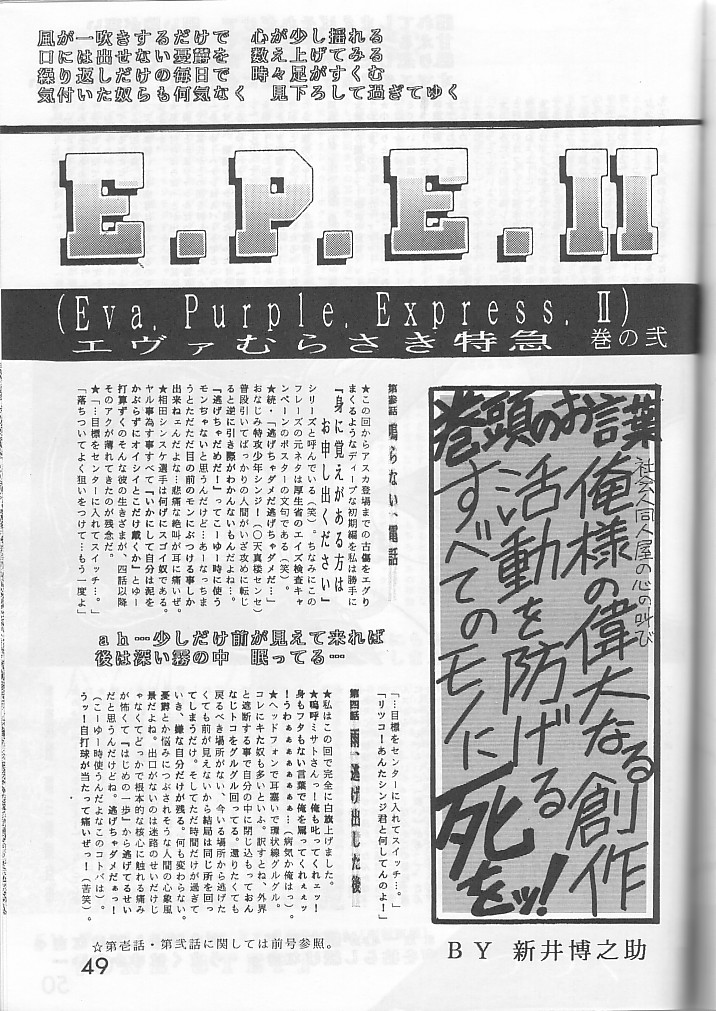 風が一吹きするだけで　心が少し揺れる
口には出せない憂鬱を　数え上げてみる
繰り返しだけの毎日で　時々足がすくむ
気付いた奴らも何気なく　見下ろして過ぎてゆく
E.P.E.II
(Eva. Purple. Express. Ⅱ)
エヴァむらさき特急　巻の弐
巻頭のお言葉
社会人同人屋の心の叫び
俺様の偉大なる創作
活動を防げる
すべてのモノに
死をッ!
BY 新井博之助
第参話 鳴らない、電話
★この回からアスカ登場までの古傷をエグり
まくるようなディープな初期編を私は勝手に
『身に覚えがある方は
お申し出ください』
シリーズと呼んでいる(笑)。ちなみにこの
フレーズの元ネタは厚生省のエイズ検査キャ
ンペーンのポスターの文句である(笑)。
★続・「逃げちゃダメだ逃げちゃダメだ…」
おなじみ特攻少年シンジ!(〇天真楼センセ)
普段引いてばっかりの人間がいざ攻めに転じ
ると逆に引き際がわかんないもんだよね…。
『逃げちゃだめだ!』ってこーゆー時に使う
モンぢゃないと思うんだけど…あーなっちま
うとただただ目の前のモンにぶつける事しか
出来ねェんだよな…悲痛な絶叫が耳に痛いぜ。
★相田シンスケ選手は何げにスゴイ奴である。
ヤル事為す事すべて『いかにして自分は泥を
かぶらずにオイシイとこだけ戴くか』とゆー
打算ずくのそんな彼の生きざまが、四話以降
そのアクが薄れてきたのが残念だ。
★「…目標をセンターに入れてスイッチ…。」
「落ちついてよく狙いをつけて…もう一度よ」
ａｈ…少しだけ前が見えて来れば
後は深い霧の中　眠ってる…
「…目標をセンターに入れてスイッチ…。」
「リツコ!あんたシンジ君と何してんのよ!」
第四話 雨、逃げ出した後
★私はこの回で完全に白旗上げました。
★嗚呼ミサトさんっ!俺も叱ってくれェッ!
身もフタもない言葉で俺を罵ってくれぇぇッ
!うわぁぁぁぁぁぁぁ…(病気か俺はっ)。
★ヘッドフォンで耳塞いで環状線グルグル。
コレにキた奴も多いといふ。訳すとね、外界
と遮断する事で自分の中に閉じ込もっておん
なじトコをグルグル回ってる。還りたくても
戻るべき場所がない、今いる場所から逃げた
くても前が見えないから結局は同じ所を回っ
てしまうだけ。そしてただ時間だけが過ぎて
いき、嫌な自分だけが残る。何も変わらない。
憂鬱とか悩みにつぶされそうな人間の心象風
景だよね。出口がないのは迷路のせいだけじ
ゃなくてどっかで根本的な核心に触れる痛み
が怖くて『はじめの一歩』から逃げてるせい
だと思うんだけどね。逃げちゃダメだぁっ!
(こーゆー時使うんだよなこのコトバは)。
うッ!自打球が当たって痛いぜっ!(苦笑)。
☆第壱話・第弐話に関しては前号参照。
49